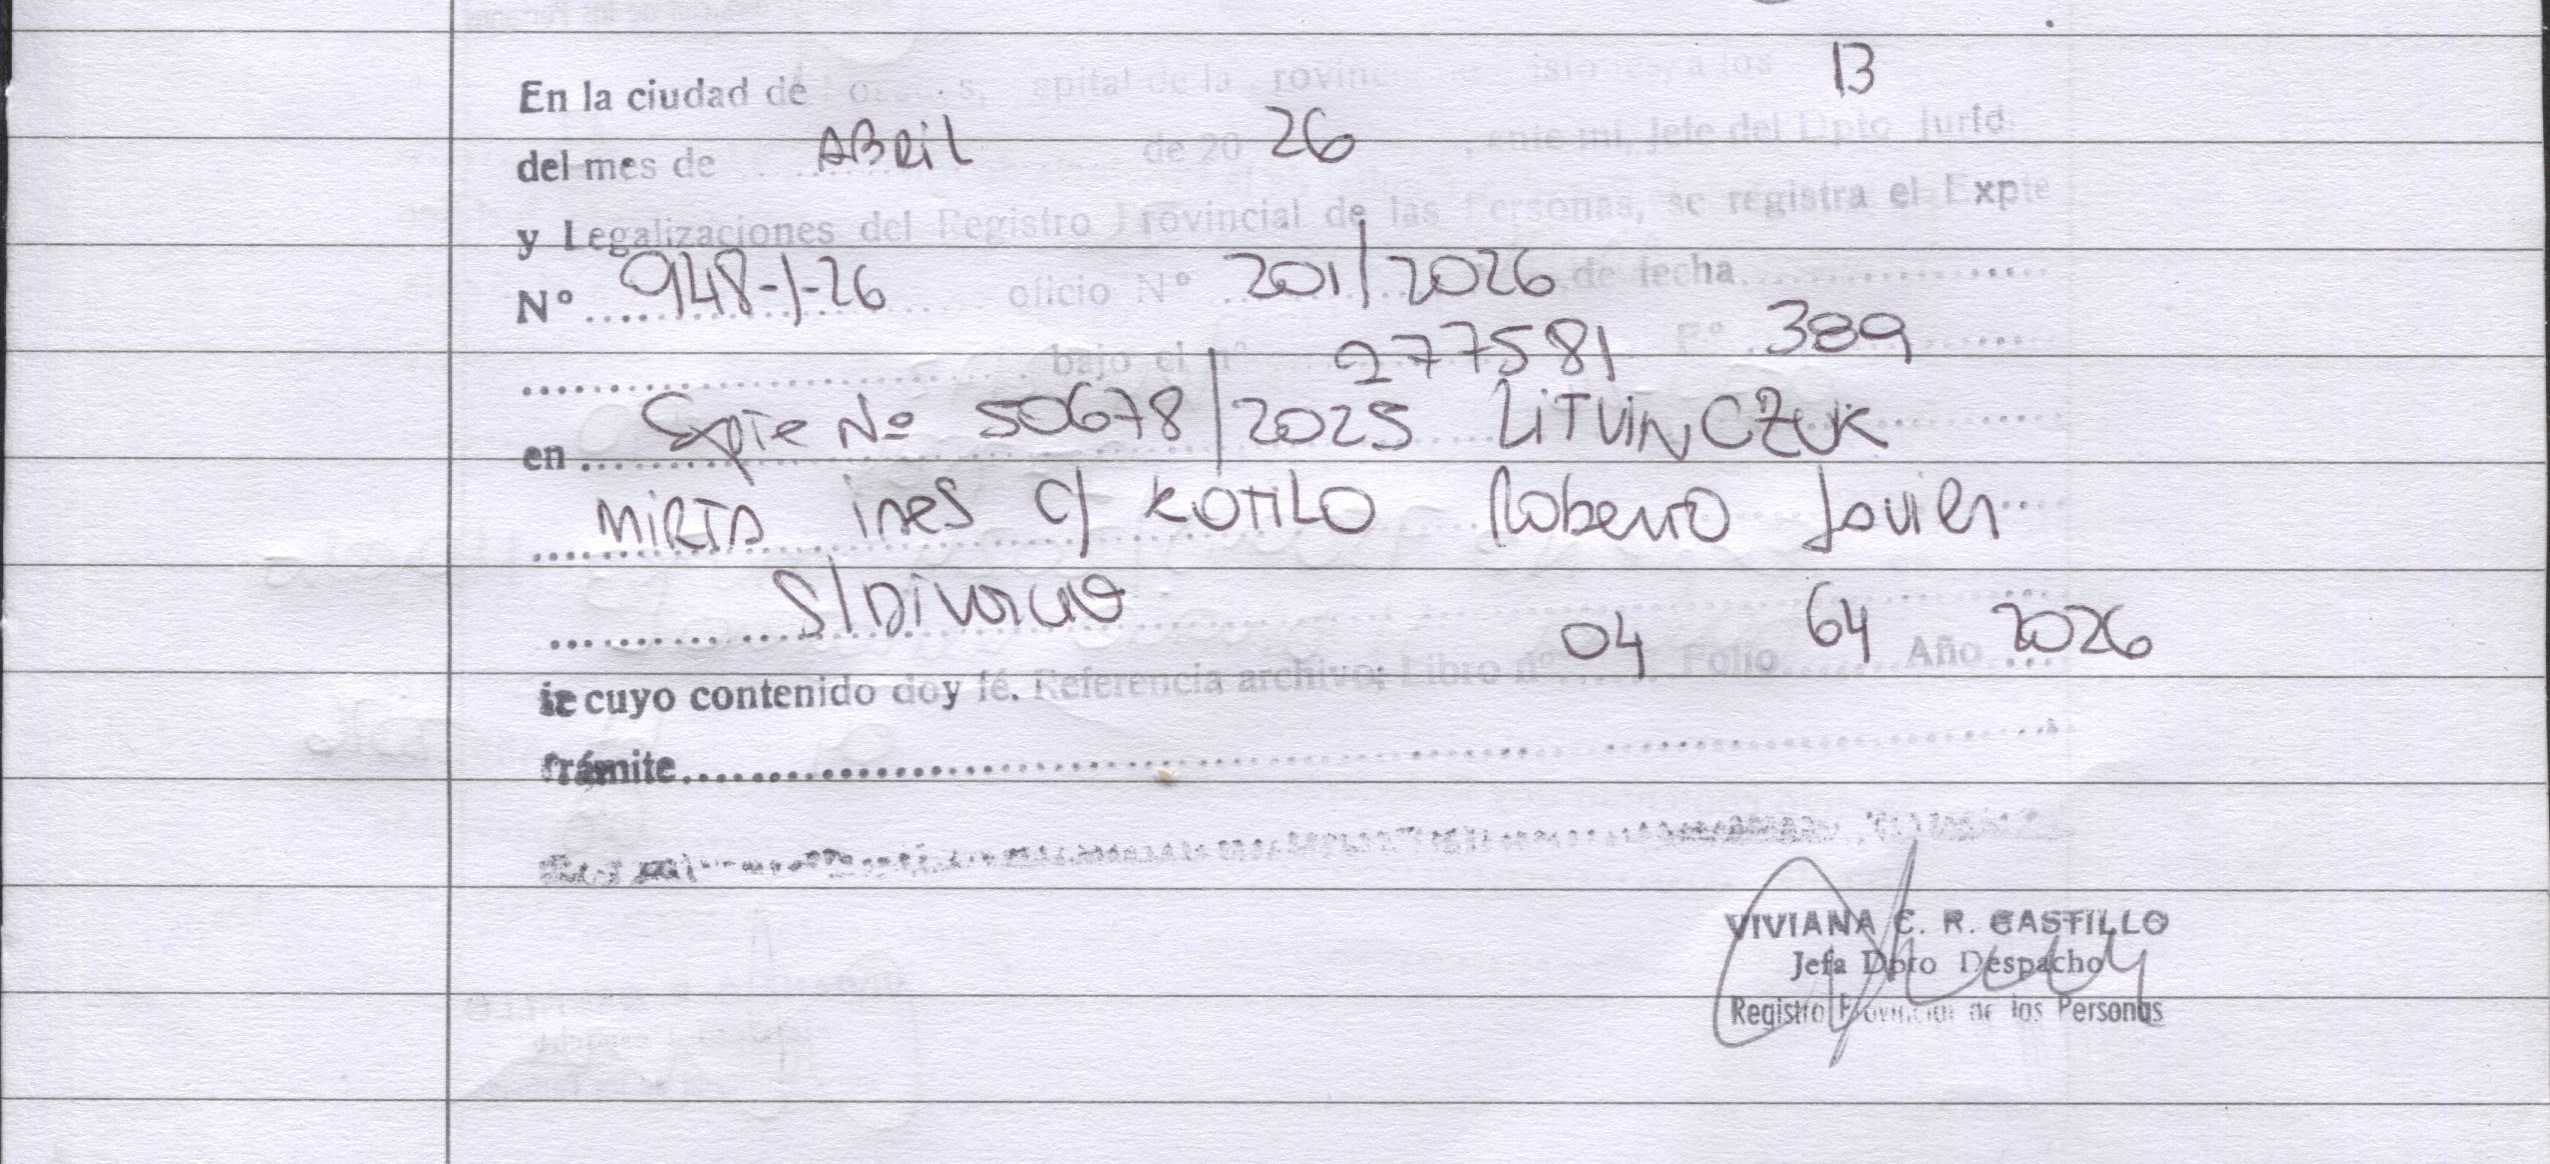 En la ciudad de Posadas, capital de la Provincia de Misiones, a los 13
del mes de ABRIL de 20 26, ante mi, Jefe del Dpto Juríd.
y Legalizaciones del Registro Provincial de las Personas, se registra el Expte
Nº 948-J-26 oficio Nº 201/2026 de fecha
bajo el nº 277581 Fº 389
en Expte Nº 50678/2025 LITVINCZUK
MIRTA INES C/ KOTILO Roberto Javier
S/DIVORCIO
de cuyo contenido doy fé. Referencia archivo; Libro nº 04 Folio 64 Año 2026
Trámite
VIVIANA C. R. CASTILLO
Jefa Dpto Despacho
Registro Provincial de las Personas